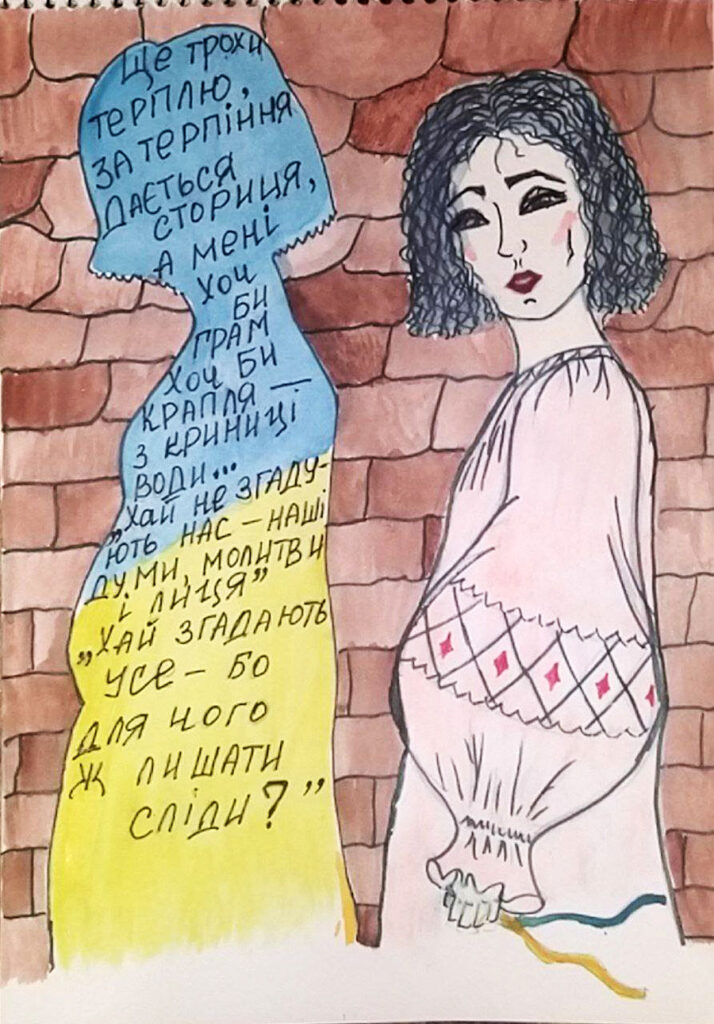 Ще трохи
терплю,
за терпіння
дається
сториця,
а мені
хоч
би
грам
хоч би
крапля —
з криниці
води...
„Хай не згаду-
ють нас — наші
думи, молитви
і лиця"
„Хай згадають
усе — бо
для чого
ж лишати
сліди?"